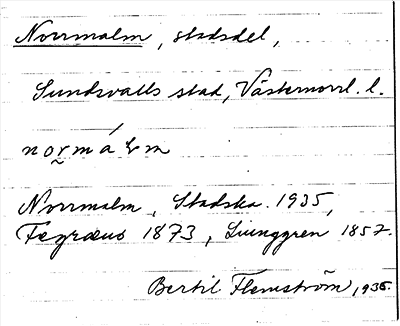 Norrmalm, stadsdel,
Sundsvalls stad, Västernorrl. l.
Norrmalm, Stadska. 1935,
Fægræus 1873, Ljunggren 1857.
Bertil Flemström, 1935.